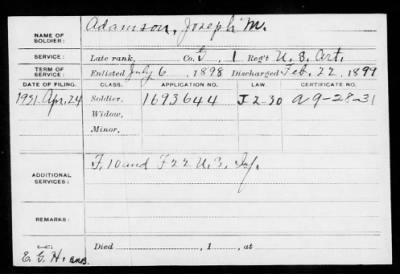 NAME OF SOLDIER: Adamson, Joseph M.
SERVICE: Late rank, Co. G, 1 Reg't U.S. Art.
TERM OF SERVICE: Enlisted July 6, 1898 Discharged Feb. 22, 1899
DATE OF FILING. CLASS. APPLICATION NO. LAW. CERTIFICATE NO.
1931 Apr. 24 Soldier, 1693644 J 2-30 a 9-28-31
Widow,
Minor,
ADDITIONAL SERVICES: F, 10 and F 22 U.S. Inf.
REMARKS:
Died , 1 , at
E.G.H.